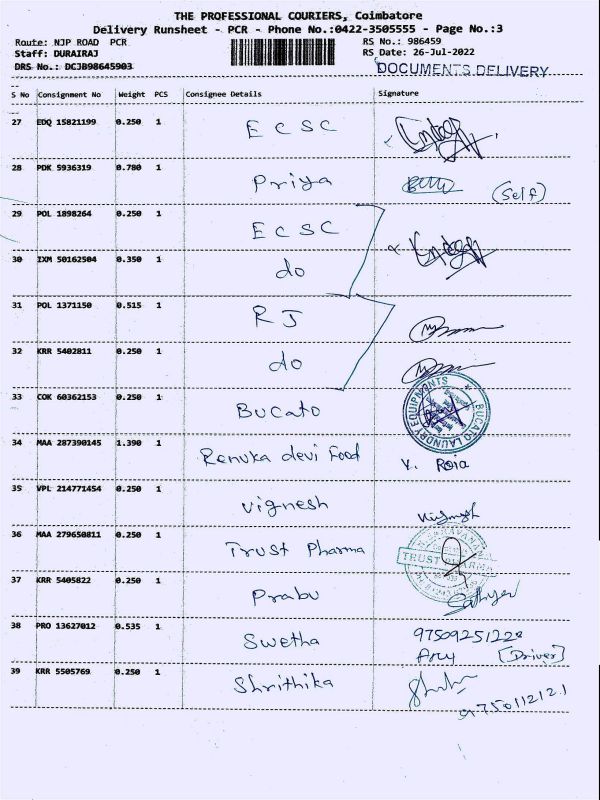 THE PROFESSIONAL COURIERS, Coimbatore
Delivery Runsheet - PCR - Phone No.:0422-3505555 - Page No.:3
Route: NJP ROAD PCR RS No.: 986459
Staff: DURAIRAJ RS Date: 26-Jul-2022
DRS No.: DCJB98645903 DOCUMENTS DELIVERY
S No Consignment No Weight PCS Consignee Details Signature
27 EDQ 15821199 0.250 1 ECSC
28 PDK 5936319 0.780 1 Priya (Self)
29 POL 1898264 0.250 1 ECSC
30 IXM 50162504 0.350 1 do
31 POL 1371150 0.515 1 RJ
32 KRR 5402811 0.250 1 do
33 COK 60362153 0.250 1 Bucato BUCATO LAUNDRY EQUIPMENTS
34 MAA 287390145 1.390 1 Renuka devi Food V. Roja
35 VPL 214771454 0.250 1 Vignesh Vignesh
36 MAA 279650811 0.250 1 Trust Pharma TRUST PHARMA
37 KRR 5405822 0.250 1 Prabu
38 PRO 13627012 0.535 1 Swetha 97509251228
[Driver]
39 KRR 5505769 0.250 1 Shrithika
9750112121